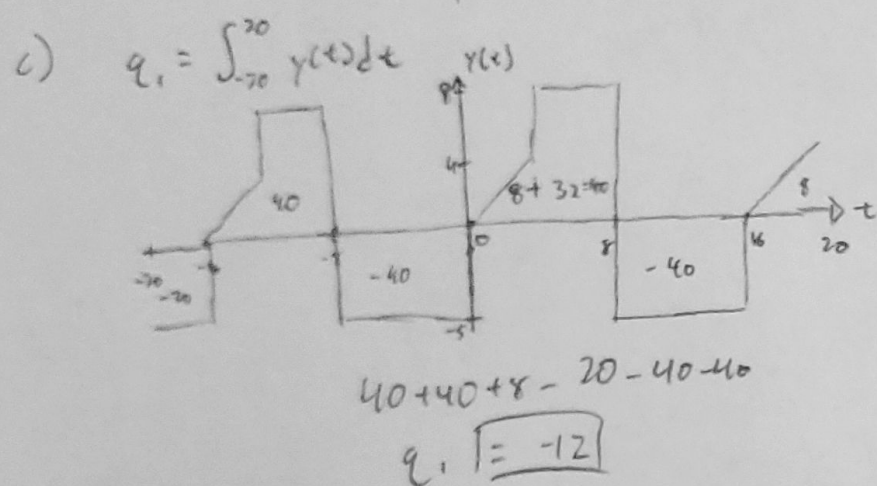 c) q₁ = ∫₋₂₀²⁰ y(t)dt
y(t)
8
4
40
8 + 32=40
8
t
-20
-20
0
8
16
20
-40
-40
-5
40+40+8-20-40-40
q₁ = -12